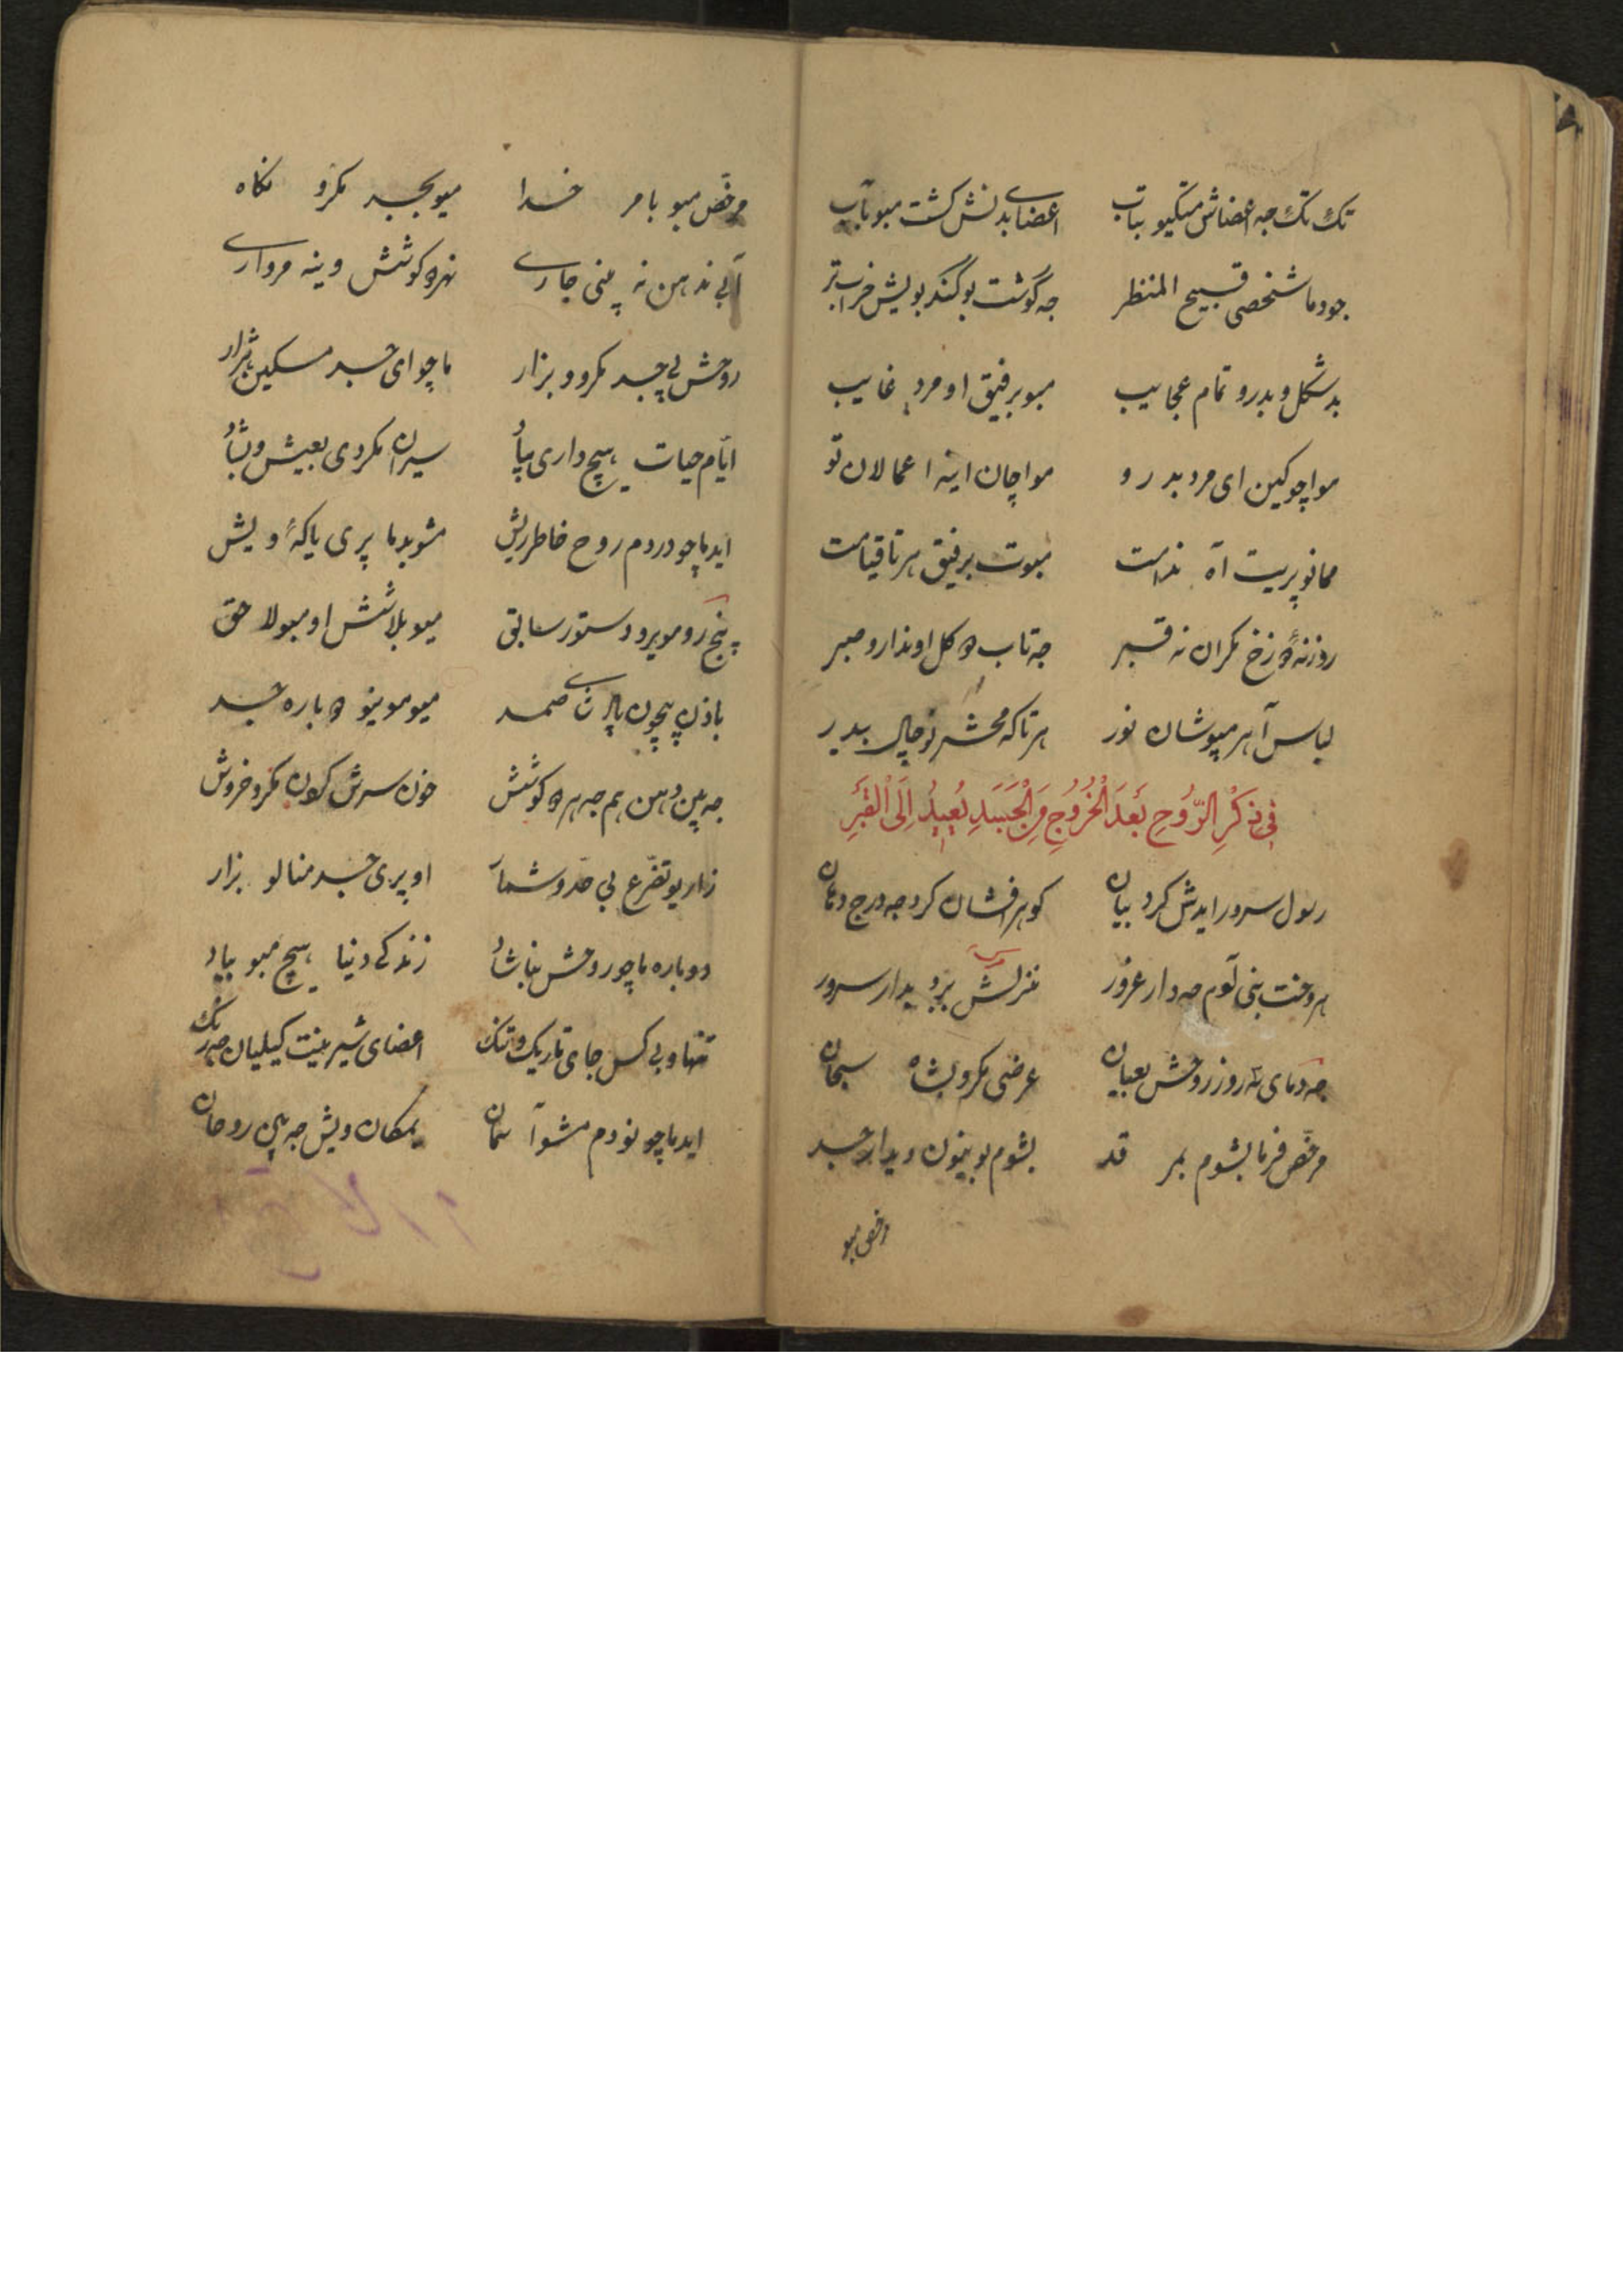 تک تک جه اعضاش متکیو بتاب اعضای بدنش کشت مبو بآب
جودما شخصی قبیح المنظر جه گوشت بوگند بویش خرابتر
بدشکل و بدرو تمام عجایب مبو برفیق او مرد غایب
مواچو کین ای مرد بدرو مواچان اینه اعمالان تو
ممانو پریت آه ندامت مبوت برفیق هر تا قیامت
روزنهٔ دزخ مکران نه قبر جه تاب کل او ندارو صبر
لباس آهر مپوشان نور هر تاکه محشر نو چال بدیر
فِی ذِکْرِ الرُّوحِ بَعْدَ الْخُرُوجِ مِنَ الْجَسَدِ یُعِیدُ اِلَی الْقَبْرِ
رسول سرور ایدش کرد بیان کوهر افشان کرد جه درج دهان
هر وخت بنی آدم جه دار غرور منزلش برو بدار سرور
جه دمای سه روز روحش بعیان عرضی مکرو بشاه سبحان
مرخّص فرما بشوم بمر قد بشوم بوینون دیدار جسد
مرخص مبو
مرخّص مبو بامر خدا میو بجسد مکرو نکاه
آبی ند هن نه پنی جاری نهره کوشش وینه مرواری
روحش پی جسد مکرو و بزار ماچو ای جسد مسکین بژار
ایّام حیات هیچ داری بیاد سیران مکردی بعیش و شاد
اید ماچو دردم روح خاطر ریش مشو بدما پری یاکهٔ ویش
پنج رو مویرو دستور سابق میو بلاشش او مبولا حق
باذن بیچون پادشای صمد میو موینو دباره جسد
جه پین دهن هم جه هر کوشش خون سرش کردن مکرو خروش
زاری و تضرّع بی حدّ و شمار او پری جسد منالو بزار
دوباره ماچو روحش بناشاد زندکی دنیا هیچ مبو بیاد
تنها و بی کس جای تاریک و تنک اعضای شیرینت کیلیان جه رنک
اید ماچو نو دم مشو آسمان بمکان ویش جه پی روحان